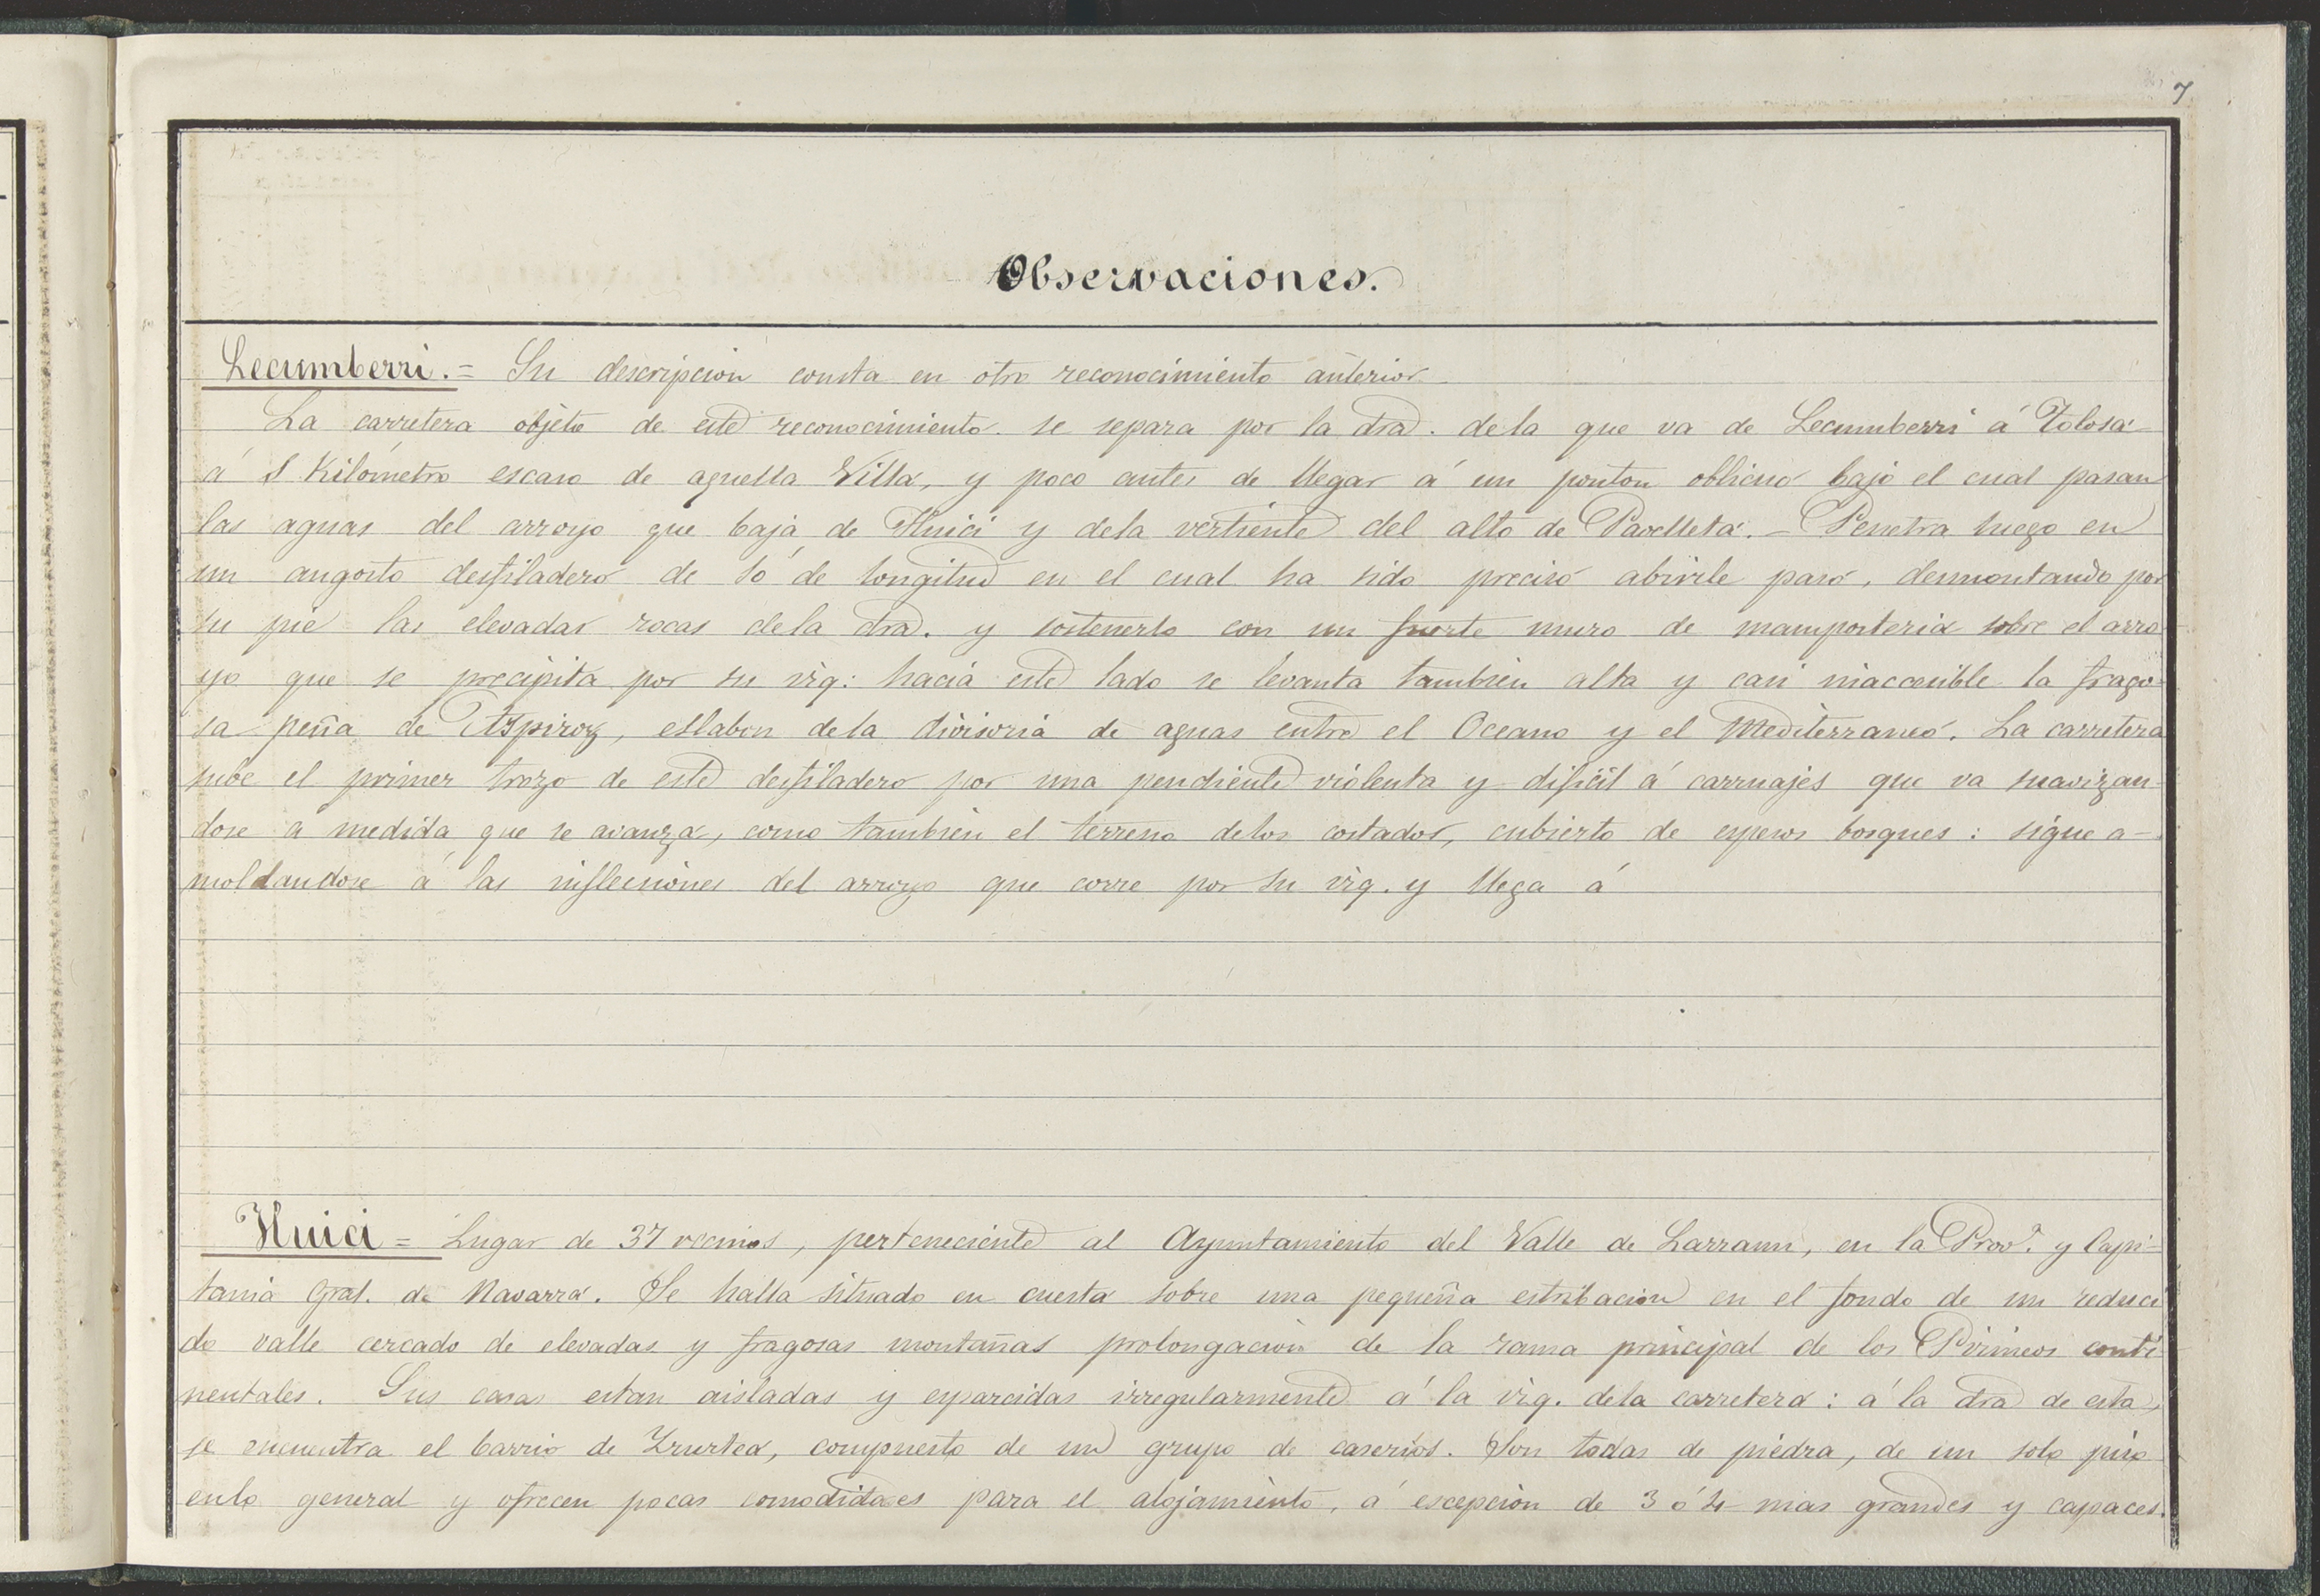 7
Observaciones.
Lecumberri. = Su descripcion consta en otro reconocimiento anterior
La carretera objeto de este reconocimiento se separa por la dra. de la que va de Lecumberri á Tolosa
á 1 Kilómetro escaso de aquella Villa, y poco antes de llegar á un ponton oblicuo bajo el cual pasan
las aguas del arroyo que baja de Huici y de la vertiente del alto de Pavelleta. - Penetra luego en
un angosto desfiladero de 10' de longitud en el cual ha sido preciso abrirle paso, desmontando por
su pie las elevadas rocas de la dra. y sostenerlo con un fuerte muro de mamposteria sobre el arro
yo que se precipita por su izq: hacia este lado se levanta tambien alta y casi inaccesible la frago-
sa peña de Azpiroz, eslabon de la divisoria de aguas entre el Oceano y el Mediterraneo. La carretera
sube el primer trozo de este desfiladero por una pendiente violenta y dificil á carruajes que va suavizan-
dose a medida que se avanza, como tambien el terreno de los costados, cubierto de espesos bosques: sigue a-
moldandose á las inflecsiones del arroyo que corre por su izq. y llega á
Huici = Lugar de 37 vecinos, perteneciente al Ayuntamiento del Valle de Larraun, en la Prov.ª y Capi-
tania Gral. de Navarra. Se halla situado en cuesta sobre una pequeña estribacion en el fondo de un reduci
do valle cercado de elevadas y fragosas montañas prolongacion de la rama principal de los Pirineos conti-
nentales. Sus casas estan aisladas y esparcidas irregularmente á la izq. de la carretera: á la dra de esta,
se encuentra el barrio de compuesto de un grupo de caserios. Son todas de piedra, de un solo piso
en lo general y ofrecen pocas comodidades para el alojamiento, á escepcion de 3 ó 4 mas grandes y capaces.